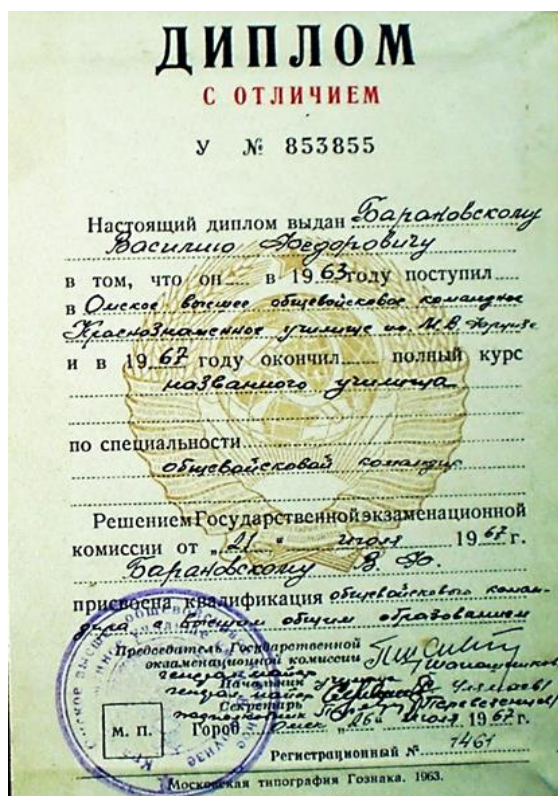 ДИПЛОМ
С ОТЛИЧИЕМ
У № 853855
Настоящий диплом выдан Барановскому
Василию Федоровичу
в том, что он в 1963 году поступил
в Омское высшее общевойсковое командное
Краснознаменное училище им. М.В. Фрунзе
и в 1967 году окончил полный курс
названного училища
по специальности
общевойсковой командир
Решением Государственной экзаменационной
комиссии от „21“ июля 1967 г.
Барановскому В. Ф.
присвоена квалификация общевойскового коман-
дира с высшим общим образованием
Председатель Государственной
экзаменационной комиссии
генерал-майор
Начальник училища
генерал-майор
Секретарь
подполковник
М. П.
Город Омск „26“ июля 1967 г.
Регистрационный № 1461
Московская типография Гознака. 1963.